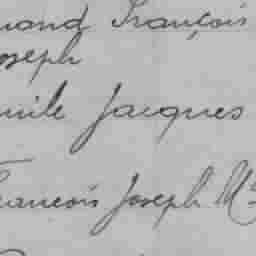 mand François
Joseph
mile Jacques
François Joseph M